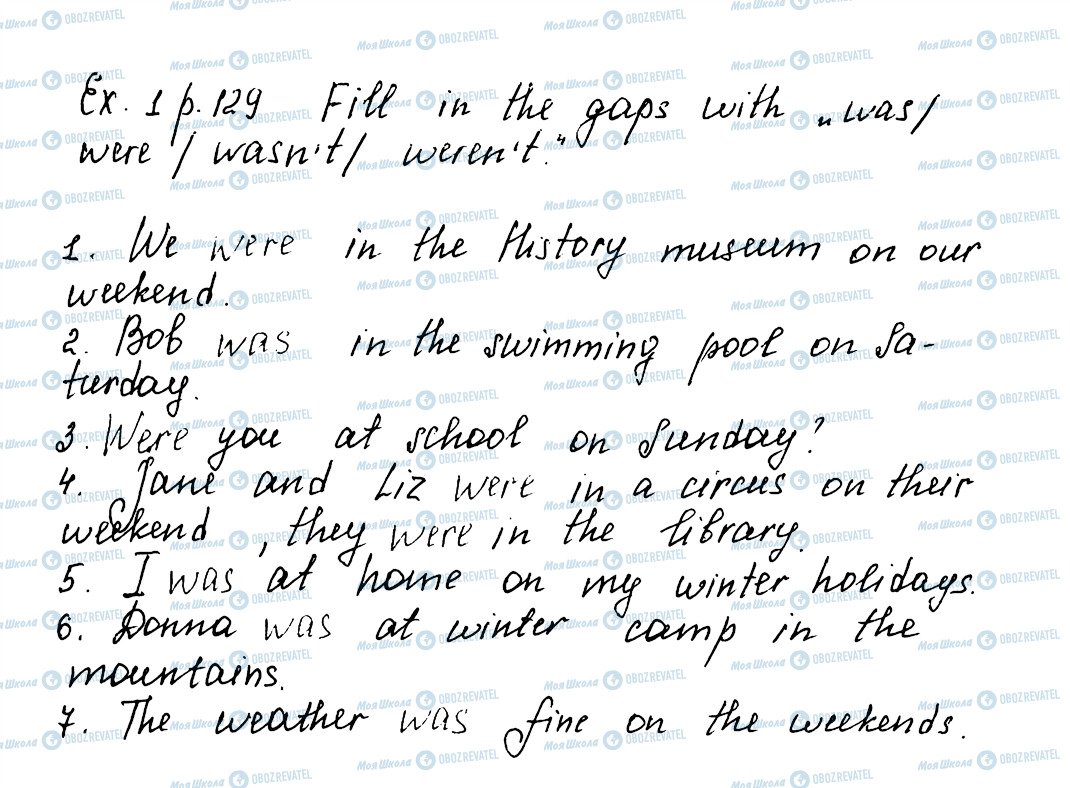 Ex. 1 p. 129 Fill in the gaps with „was/
were / wasn't/ weren't."
1. We were in the History museum on our
weekend.
2. Bob was in the swimming pool on Sa-
turday.
3. Were you at school on Sunday?
4. Jane and Liz were in a circus on their
weekend, they were in the library.
5. I was at home on my winter holidays.
6. Donna was at winter camp in the
mountains.
7. The weather was fine on the weekends.